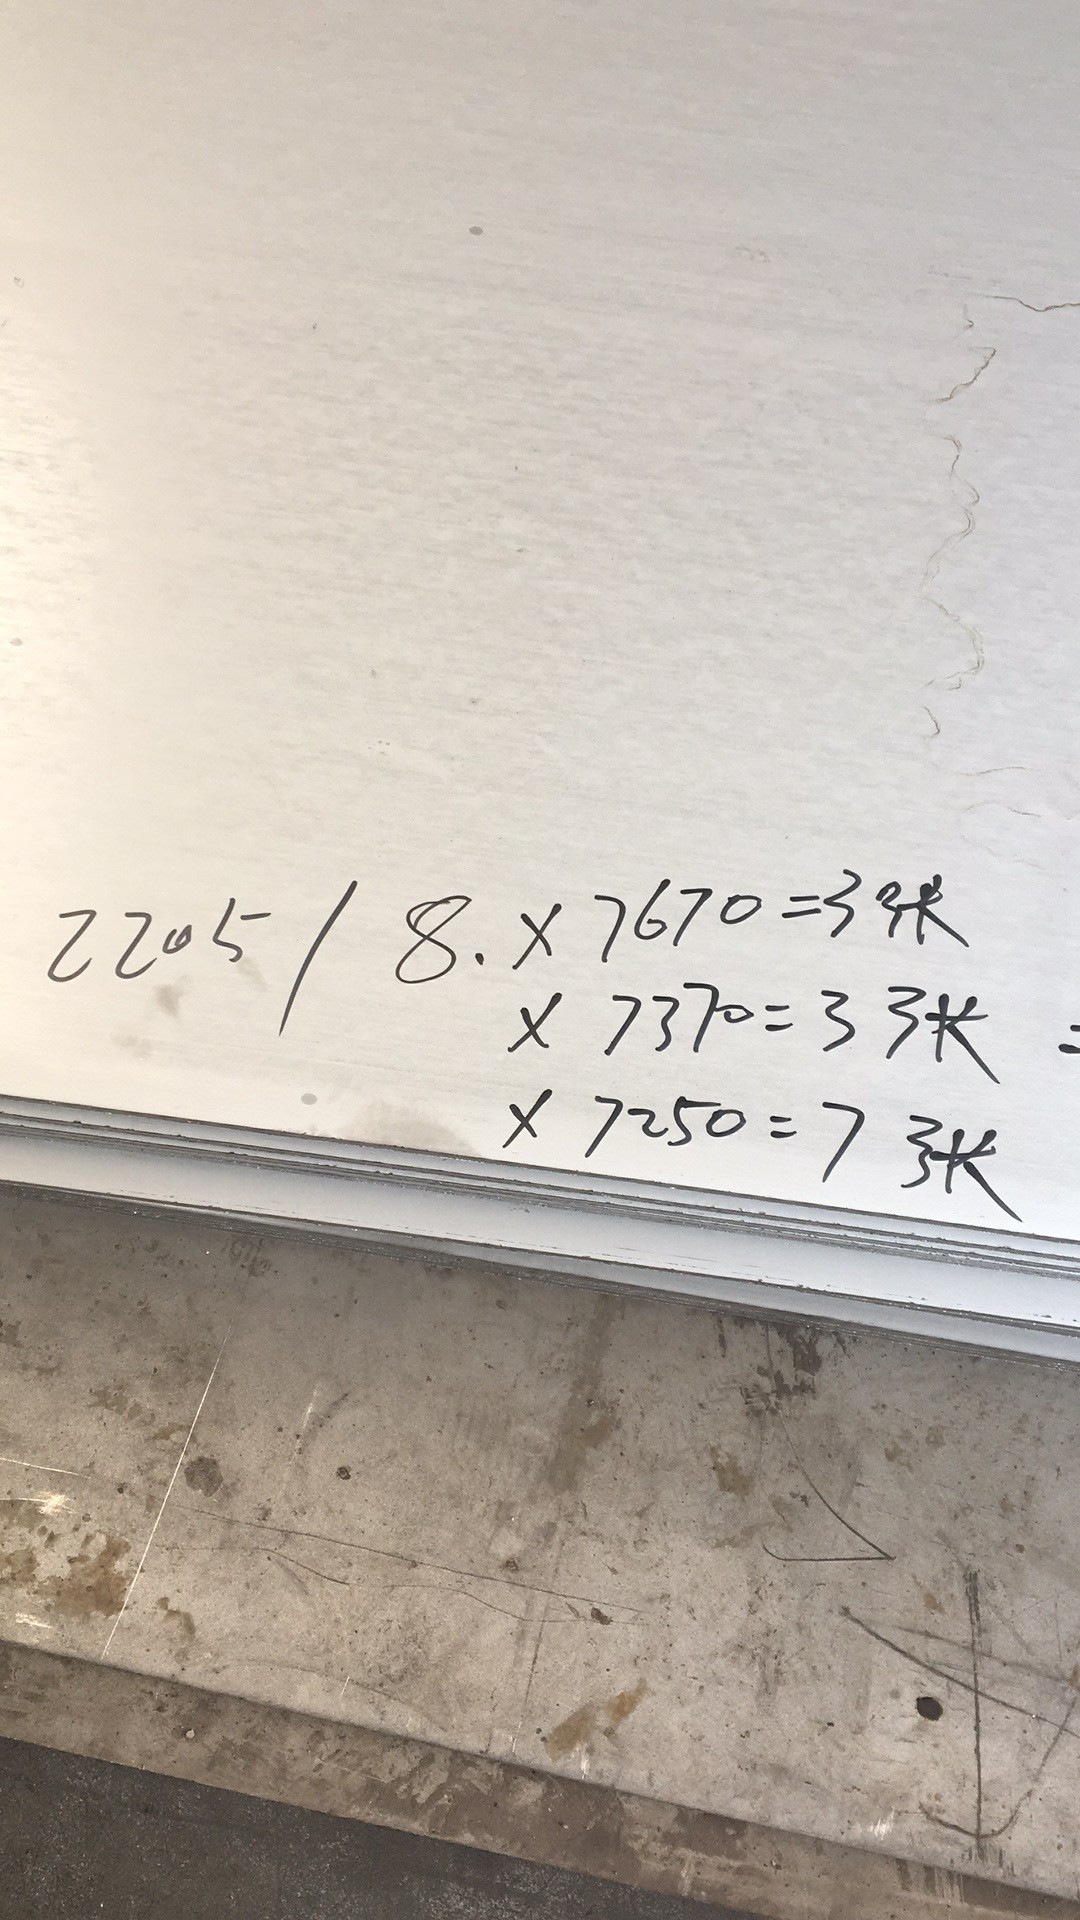 2205/8.×7670=3张
×7370=3张 =
×7250=7张